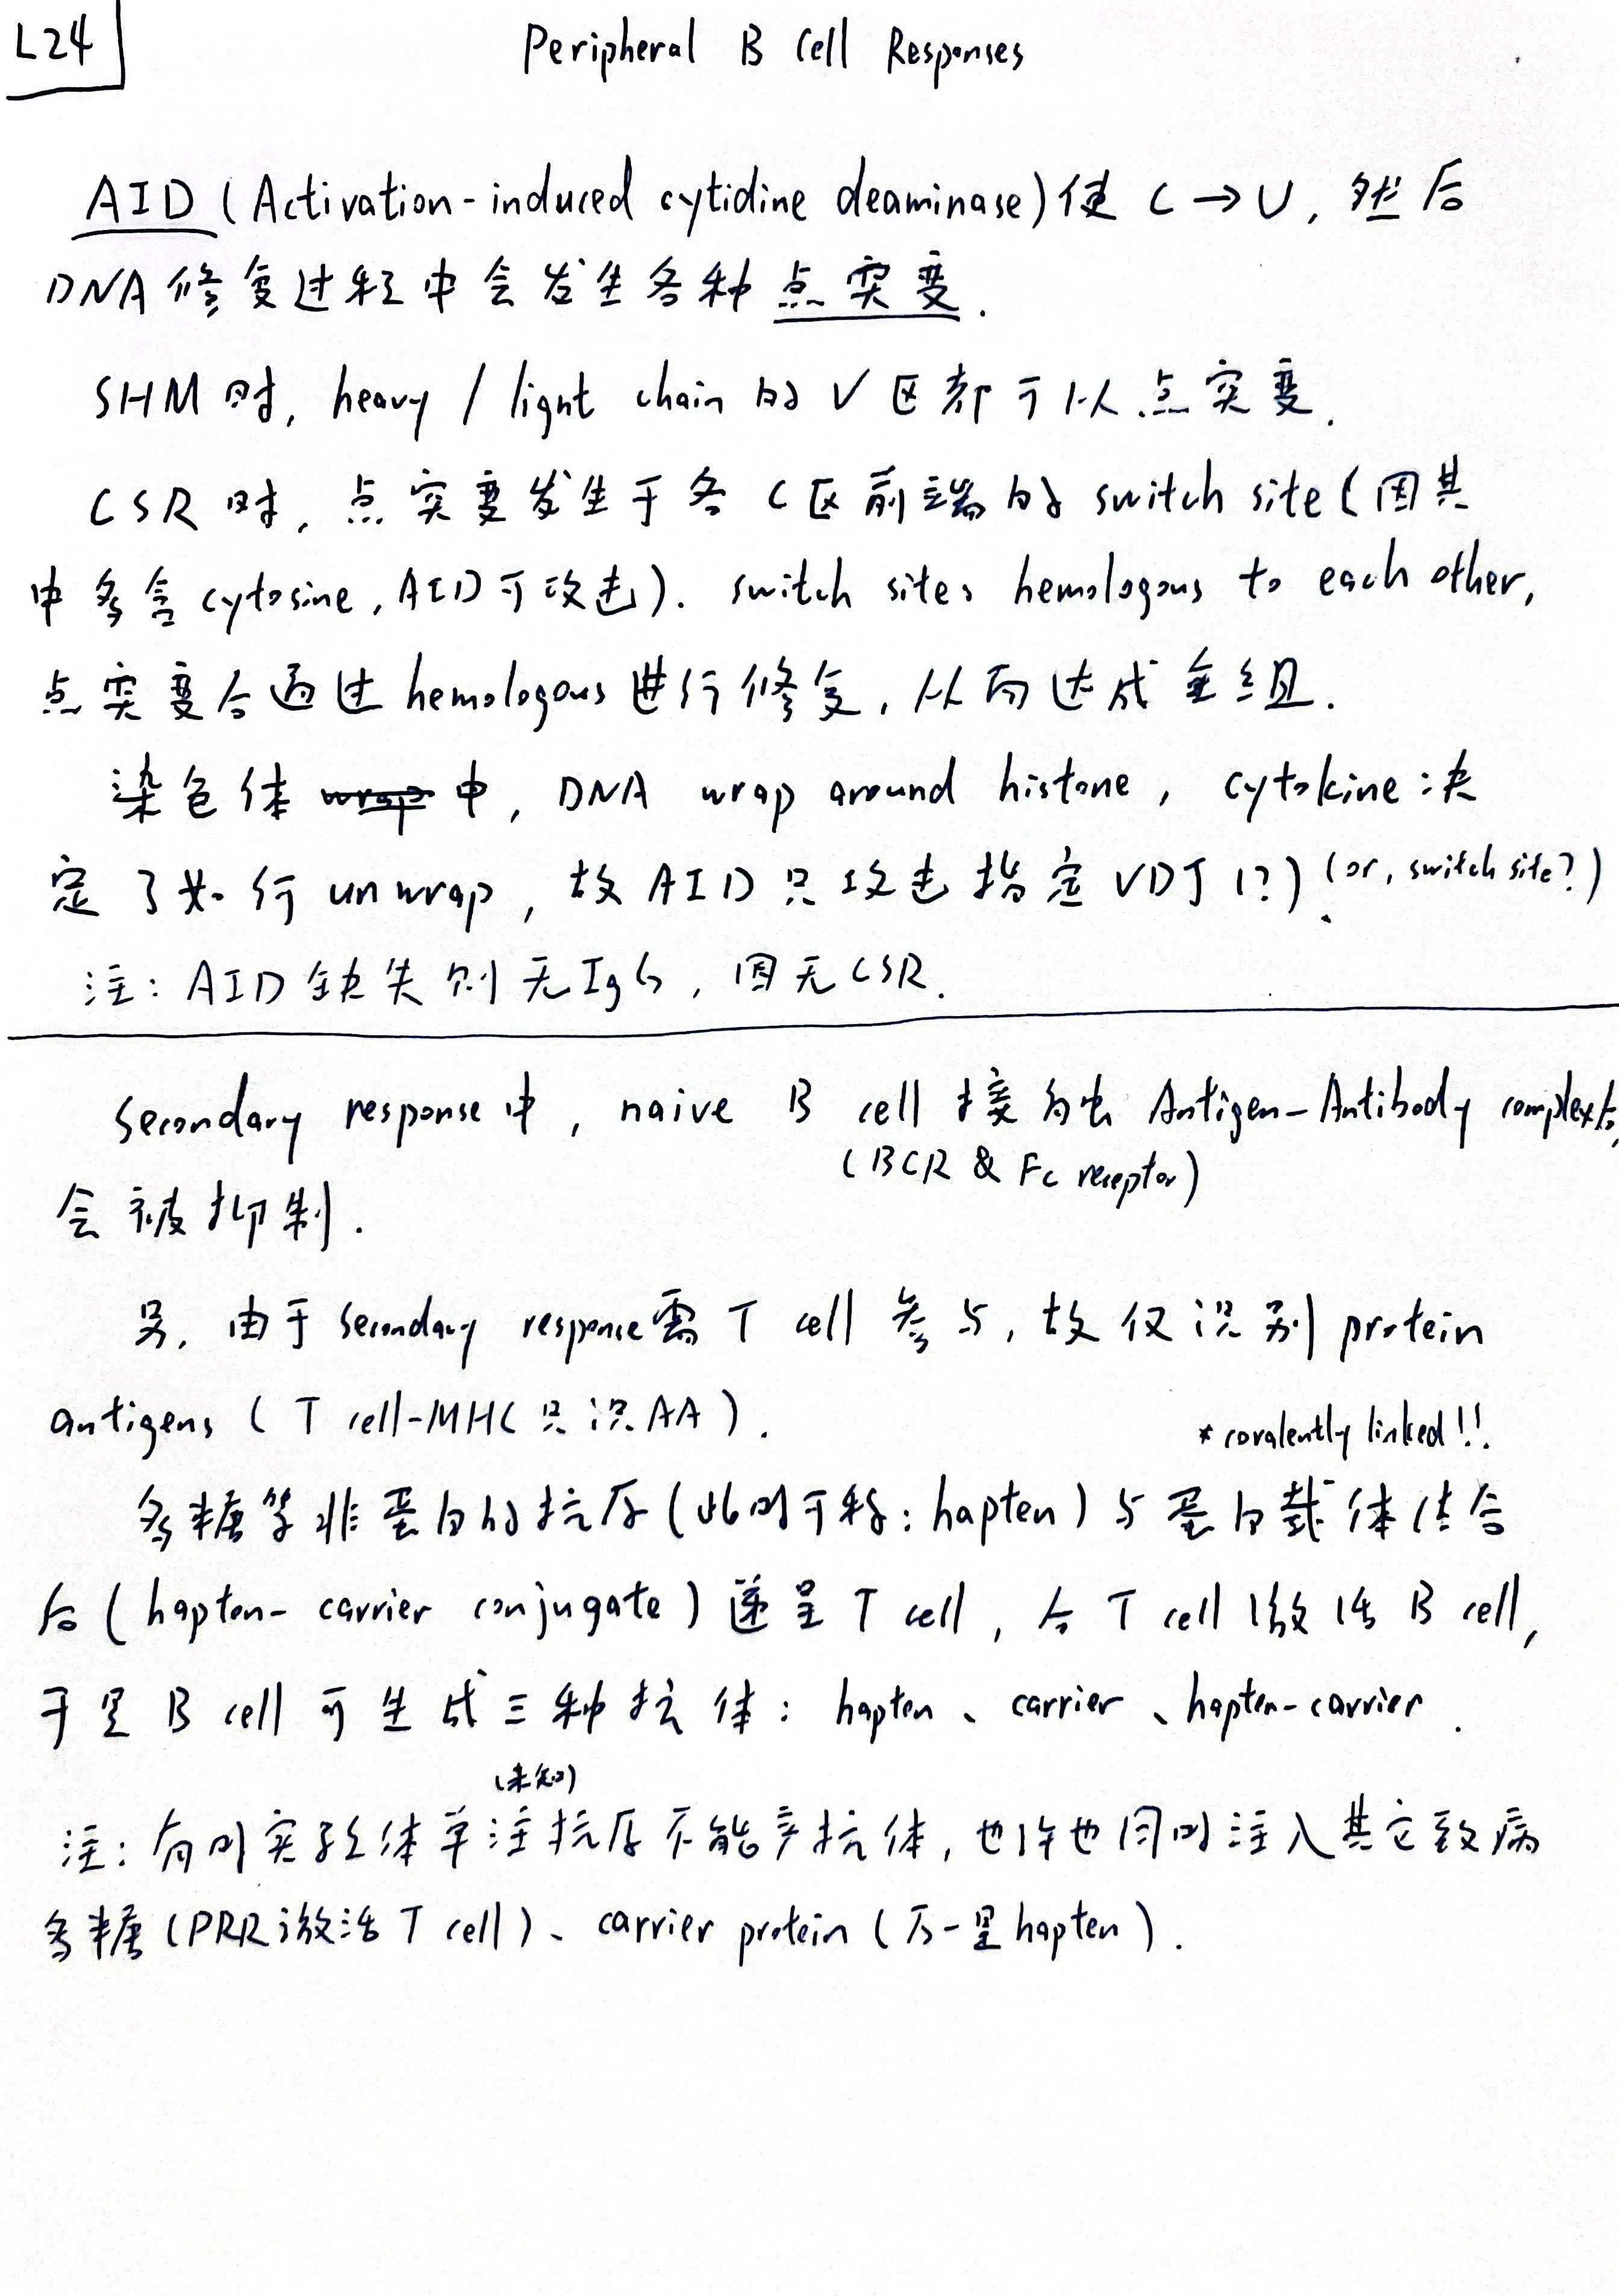 L24
Peripheral B Cell Responses
AID (Activation-induced cytidine deaminase)使 C→U, 然后
DNA修复过程中会发生各种点突变.
SHM时, heavy / light chain的V区都可以点突变.
CSR时, 点突变发生于各C区前端的switch site(因其
中多含cytosine, AID可攻击). switch sites hemologous to each other,
点突变后通过hemologous进行修复, 从而达成重组.
染色体 wrap 中, DNA wrap around histone, cytokine决
定了如何unwrap, 故AID只攻击指定VDJ(?) (or, switch site?).
注: AID缺失则无IgG, 因无CSR.
Secondary response中, naive B cell 接触 Antigen-Antibody complex后,
(BCR & Fc receptor)
会被抑制.
另, 由于secondary response需T cell参与, 故仅识别protein
antigens (T cell-MHC只识AA).
* covalently linked!!
多糖等非蛋白的抗原(此时可称: hapten)与蛋白载体结合
后(hapten-carrier conjugate)递呈T cell, 后T cell激活B cell,
于是B cell可生成三种抗体: hapten、carrier、hapten-carrier.
(未知)
注: 有时实验体单注抗原不能产抗体, 也许也同时注入其它致病
多糖(PRR激活T cell)、carrier protein(万一是hapten).